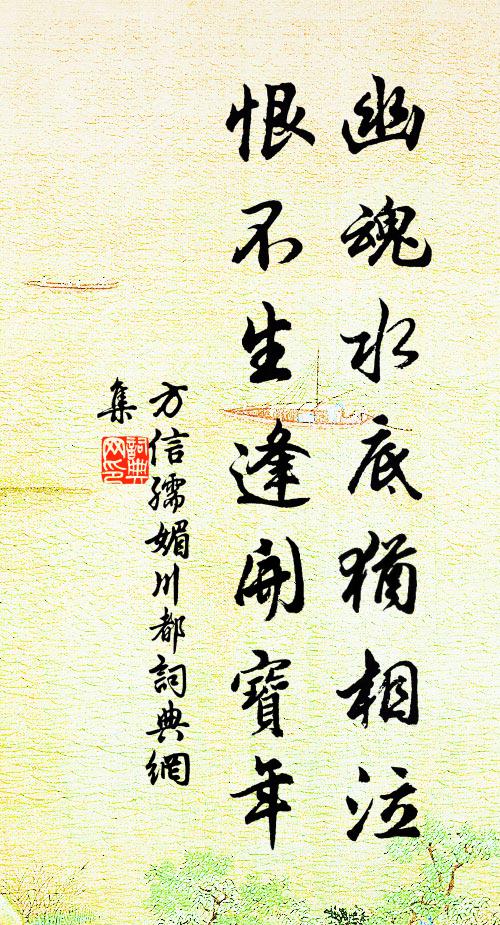 幽魂水底猶相泣
恨不生逢開寶年
方信孺媚川都詞典網
集
詞典網印